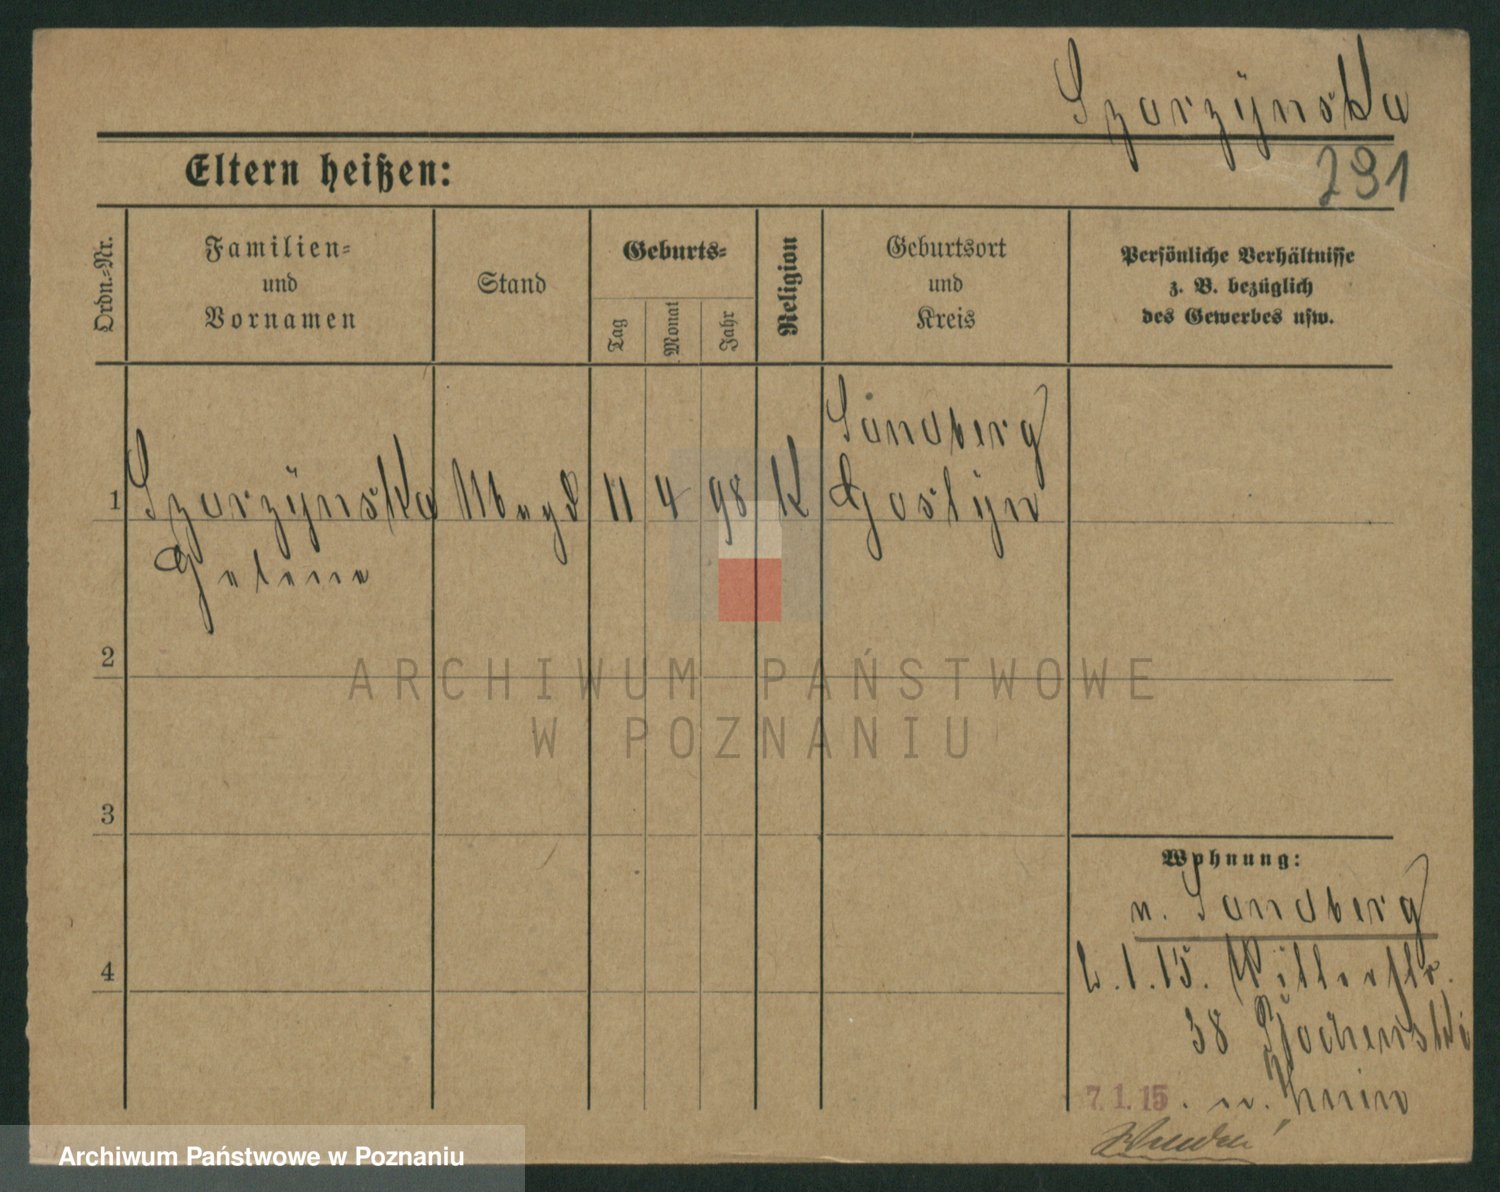 Szarzyńska
291
Eltern heißen:
Ordn.=Nr.
Familien=
und
Vornamen
Stand
Geburts=
Tag
Monat
Jahr
Religion
Geburtsort
und
Kreis
Persönliche Verhältnisse
z. B. bezüglich
des Gewerbes usw.
1 Szarzÿnska Magd 11 4 98 K Sandberg
Gostÿn
Helene
2
3
4
Wohnung:
n. Sandberg
2.1.15.
38
7.1.15. n. Znin
ARCHIWUM PAŃSTWOWE
W POZNANIU
Archiwum Państwowe w Poznaniu